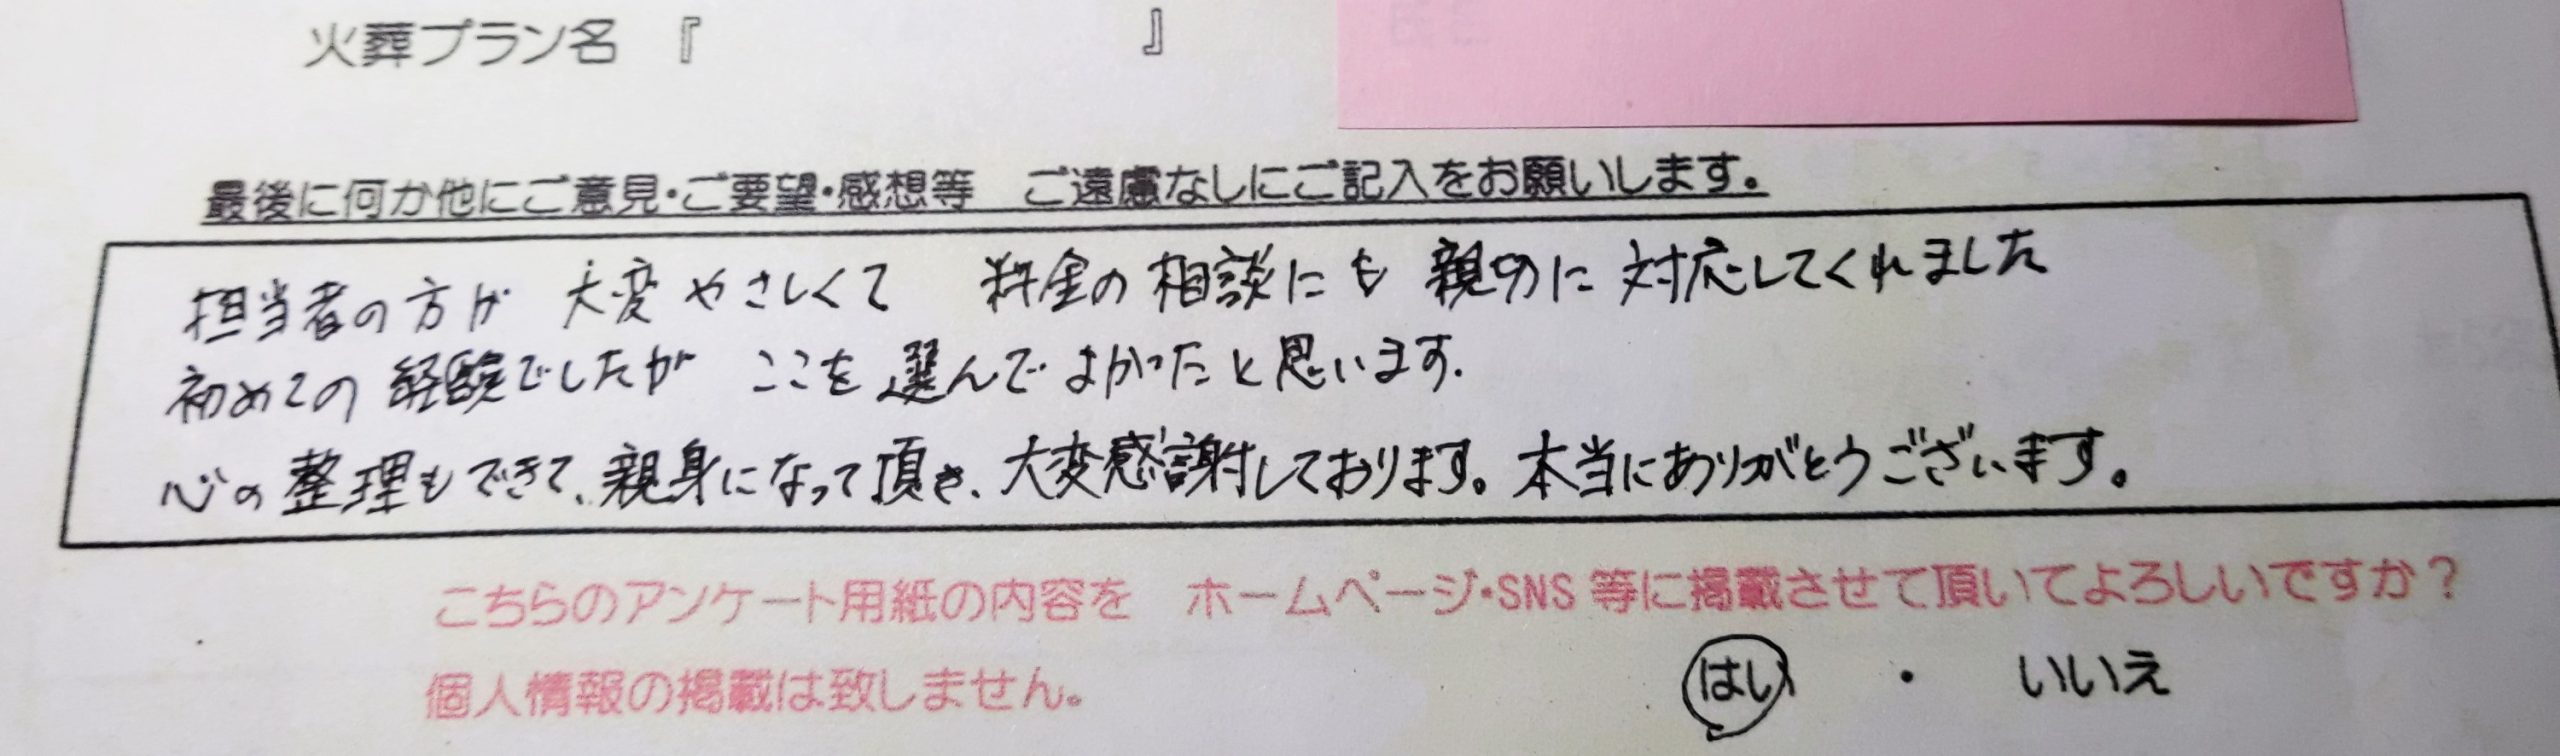 火葬プラン名 『 』
最後に何か他にご意見・ご要望・感想等 ご遠慮なしにご記入をお願いします。
担当者の方が 大変やさしくて 料金の相談にも 親切に 対応してくれました
初めての 経験でしたが ここを 選んで よかったと思います.
心の整理もできて、親身になって頂き、大変感謝しております。本当にありがとうございます。
こちらのアンケート用紙の内容を ホームページ・SNS 等に掲載させて頂いてよろしいですか？
個人情報の掲載は致しません。
はい ・ いいえ